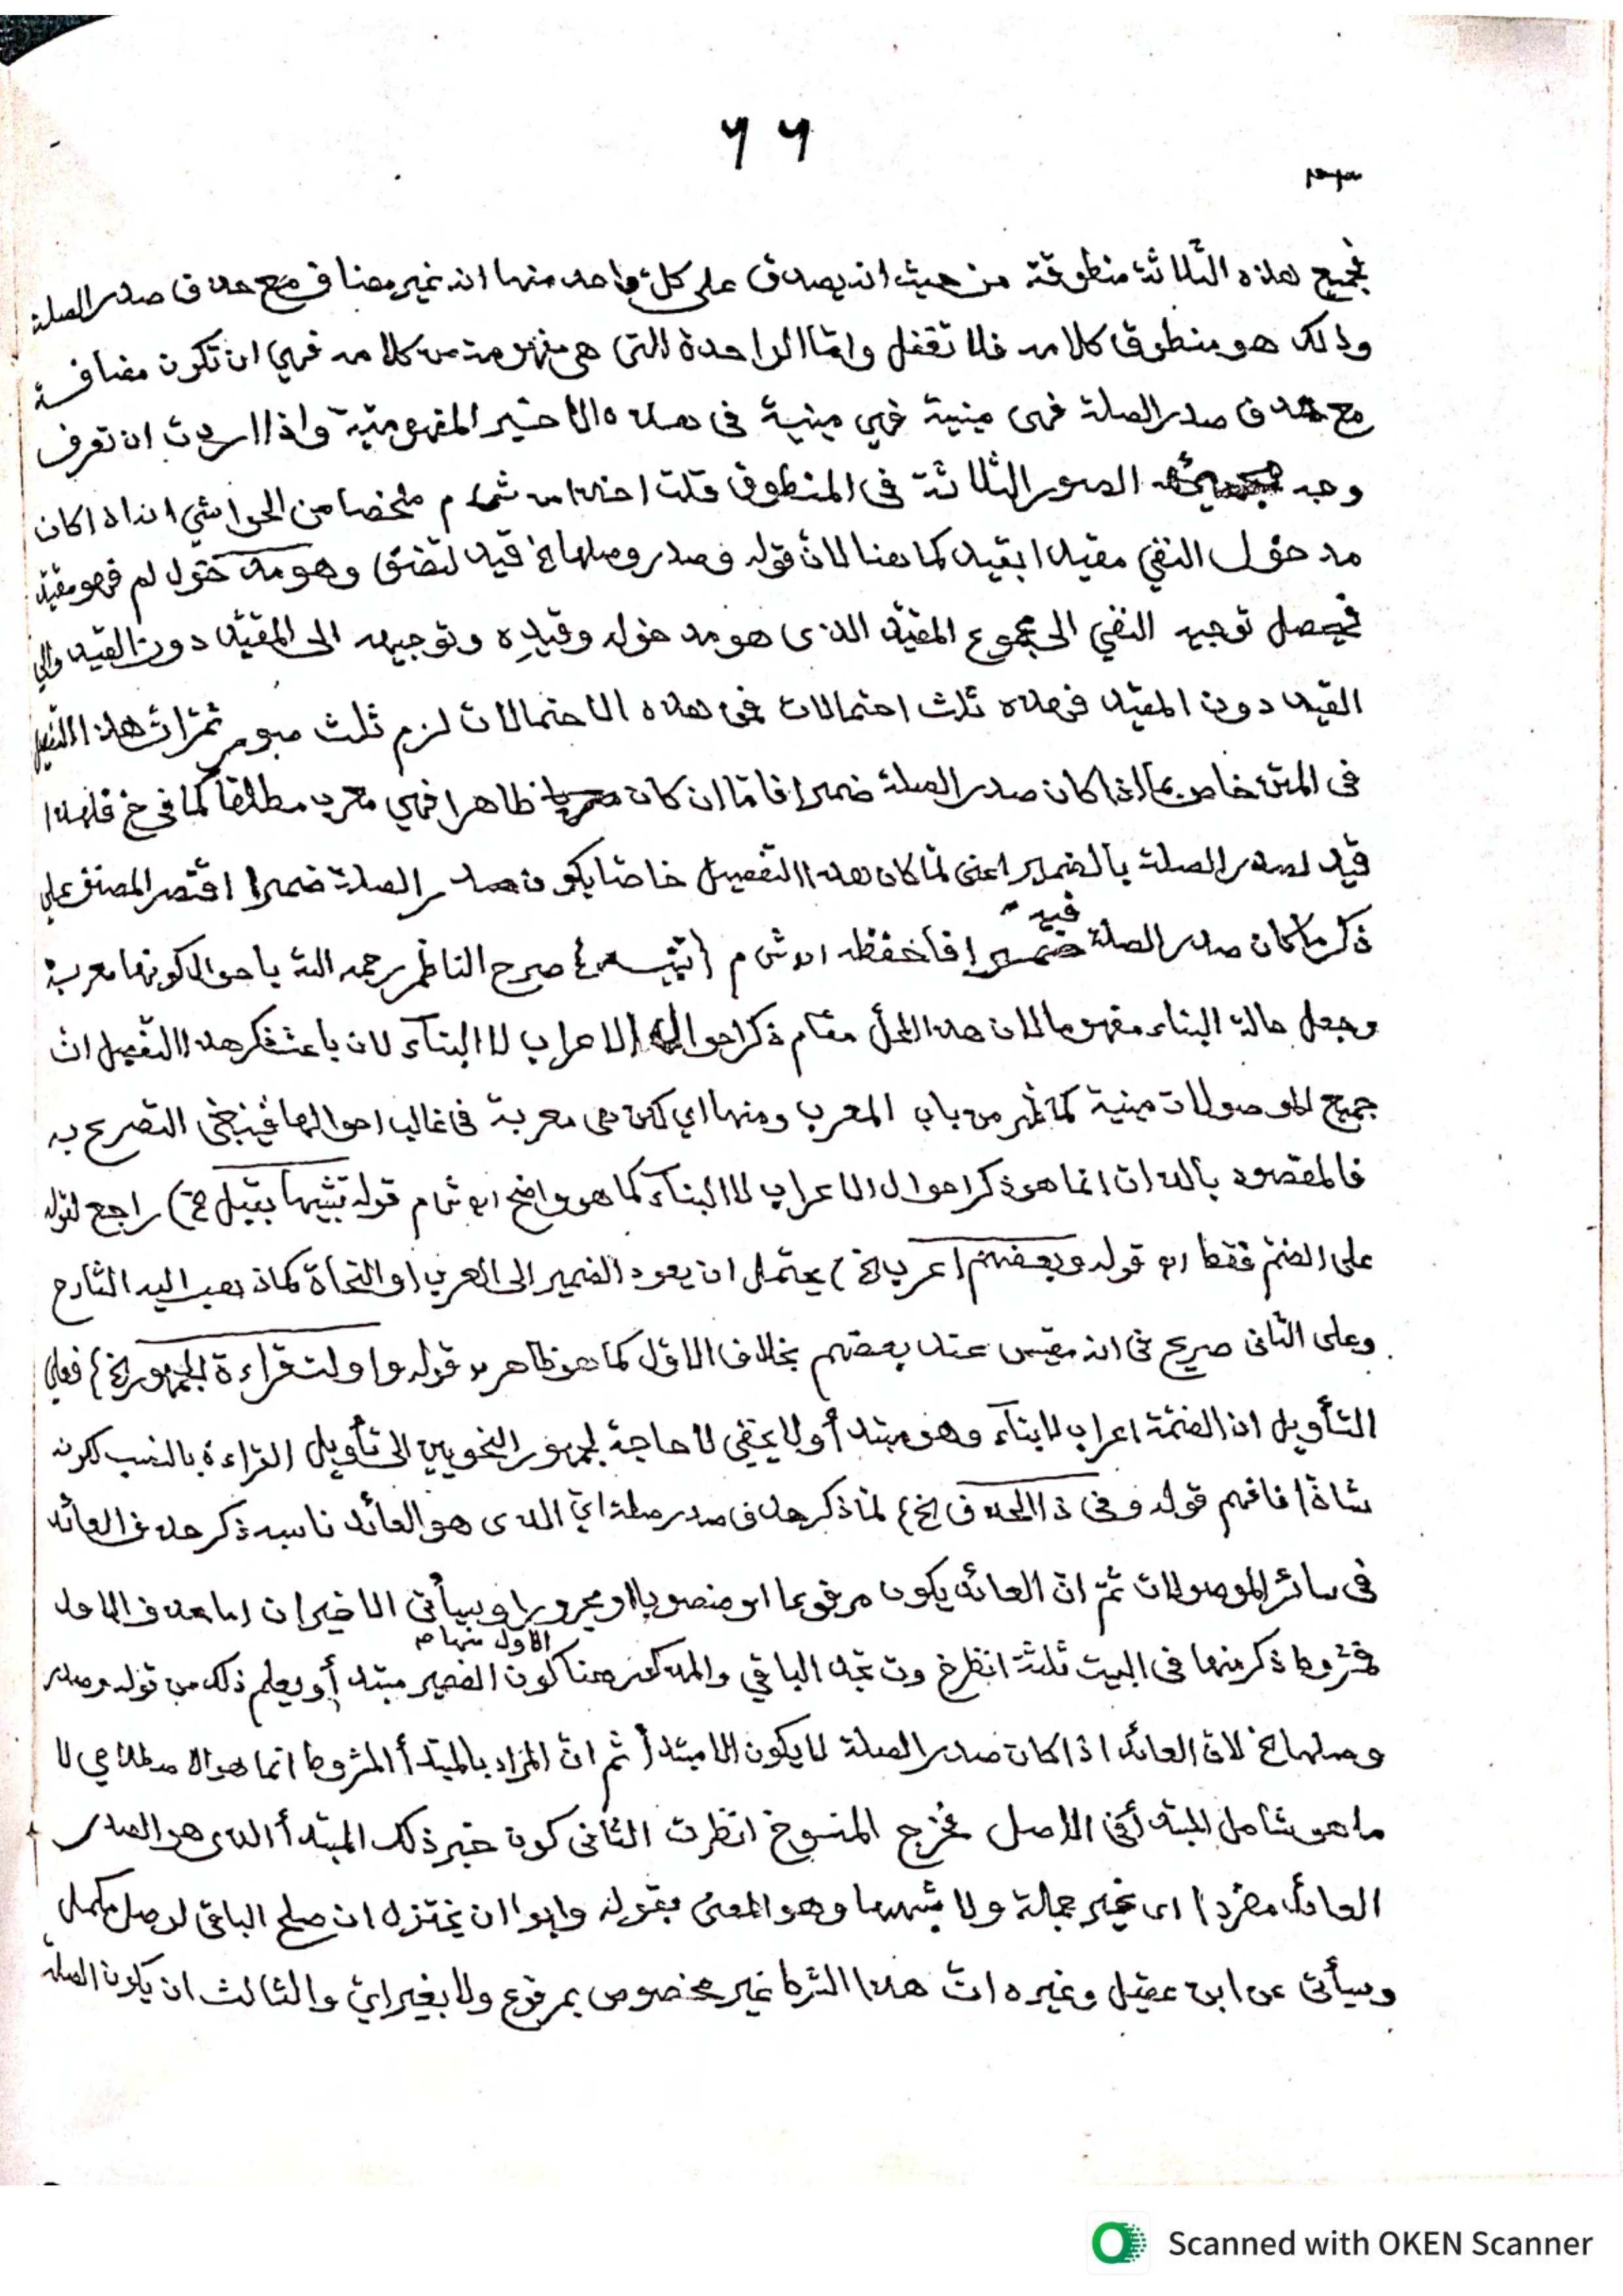 ٦٦
فجميع هذه الثلاثة منطوقة من حيث انه يصدق على كل واحد منها انه غير مضاف مع حذف صدر الصلة
وذلك هو منطوق كلامه فلا تغفل وامّا الواحدة التى هى مفهومة من كلامه فهي ان تكون مضافة
مع حذف صدر الصلة فهى مبنية فهي مبنية فى هذه الاخير المفهومية واذا اردت ان تعرف
وجه الصور الثلاثة فى المنطوق قلت م ملخصا من الحواشي انه اذا كان
مدخول النفي مقيدا بقيد كما هنا لانّ قوله وصدر وصلها الخ قيد لتضف وهو مدخول لم فهو مقيّد
فيحصل توجيه النفي الى مجموع المقيّد الذى هو مدخوله وقيدِه وتوجيهه الى المقيّد دون القيد والى
القيد دون المقيد فهذه ثلث احتمالات فمن هذه الاحتمالات لزم ثلث صور ثمّ انّ هذا التفصيل
فى المتن خاص بما اذا كان صدر الصلة ضميرا فامّا ان كان ظاهرا فهي معرب مطلقا كما فى خ فلهذا
قيد لصدر الصلة بالضمير اعنى لمّا كان هذا التفصيل خاصّا بكون صدر الصلة ضميرا اقتصر المصنف على
ذكر ما كان صدر الصلة فيه ضميرا فاحفظه اه ش م {تنبيه} صرح الناظم رحمه الله باحوال كونها معربة
وجعل حالة البناء مفهوما لان هذا المحلّ مقام ذكر احوال الاعراب لا البنآء لان باعث ذكر هذا التفصيل انّ
جميع الموصولات مبنية كما مر من باب المعرب ومنها اي لكن هى معربة فى غالب احوالها فينبغى التصريح به
فالمقصود بالذات انما هو ذكر احوال الاعراب لا البنآء كما هو واضح اه ش م قوله تشبيها بقبل الخ) راجع لقوله
على الضمّ فقط اه قوله وبعضهم اعرب الخ) يحتمل ان يعود الضمير الى العرب او النحاة كما ذهب اليه الشارح
وعلى الثانى صريح فى انه مقيس عند بعضهم بخلاف الاوّل كما هو ظاهر اه قوله واولت قراءة الجمهور الخ} فعلى
التأويل ان الضمّة اعراب لا بنآء وهو مبتدأ ولا يخفى لا حاجة لجمهور النحويين الى تأويل القراءة بالنصب لكونه
شاذا فافهم قوله وفى ذا الحذف الخ} لمّا ذكر حذف صدر صلة ايّ الذى هو العائد ناسبه ذكر حذف العائد
فى سائر الموصولات ثمّ انّ العائد يكون مرفوعا او منصوبا او مجرورا وسيأتى الاخيران اما حذف الاول
فشروط ذكر منها فى البيت ثلثة انظر خ وت تجد الباقي والمذكور هنا الاول منها كون الضمير مبتدأ ويعلم ذلك من قوله وصدر
وصلها الخ لانّ العائد اذا كان صدر الصلة لا يكون الا مبتدأ ثم انّ المراد بالمبتدأ المشروط انما هو الاصطلاحي لا
ما هو شامل للمبتدأ فى الاصل فخرج المنسوخ انظر ت الثانى كون خبر ذلك المبتدأ الذى هو الصدر
العائد مفردا اى غير جملة ولا شبهها وهو المعنى بقوله وابوا ان يختزل ان صلح الباقى لوصل مكمل
وسيأتى عن ابن عقيل وغيره انّ هذا الشرط غير مخصوص بمرفوع ولا بغير ايّ والثالث ان يكون الصلة
Scanned with OKEN Scanner